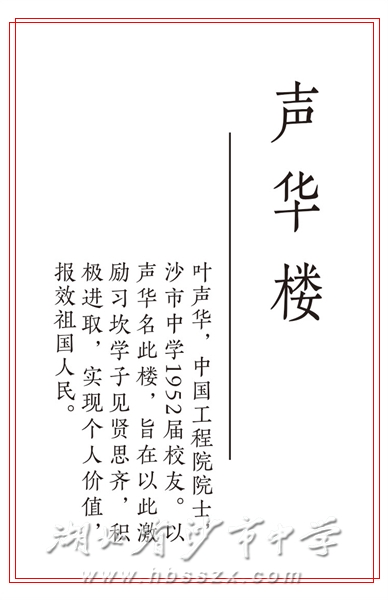 声华楼
叶声华，中国工程院院士，
沙市中学1952届校友。以
声华名此楼，旨在以此激
励习坎学子见贤思齐，积
极进取，实现个人价值，
报效祖国人民。
湖北省沙市中学
www.hbsszx.com